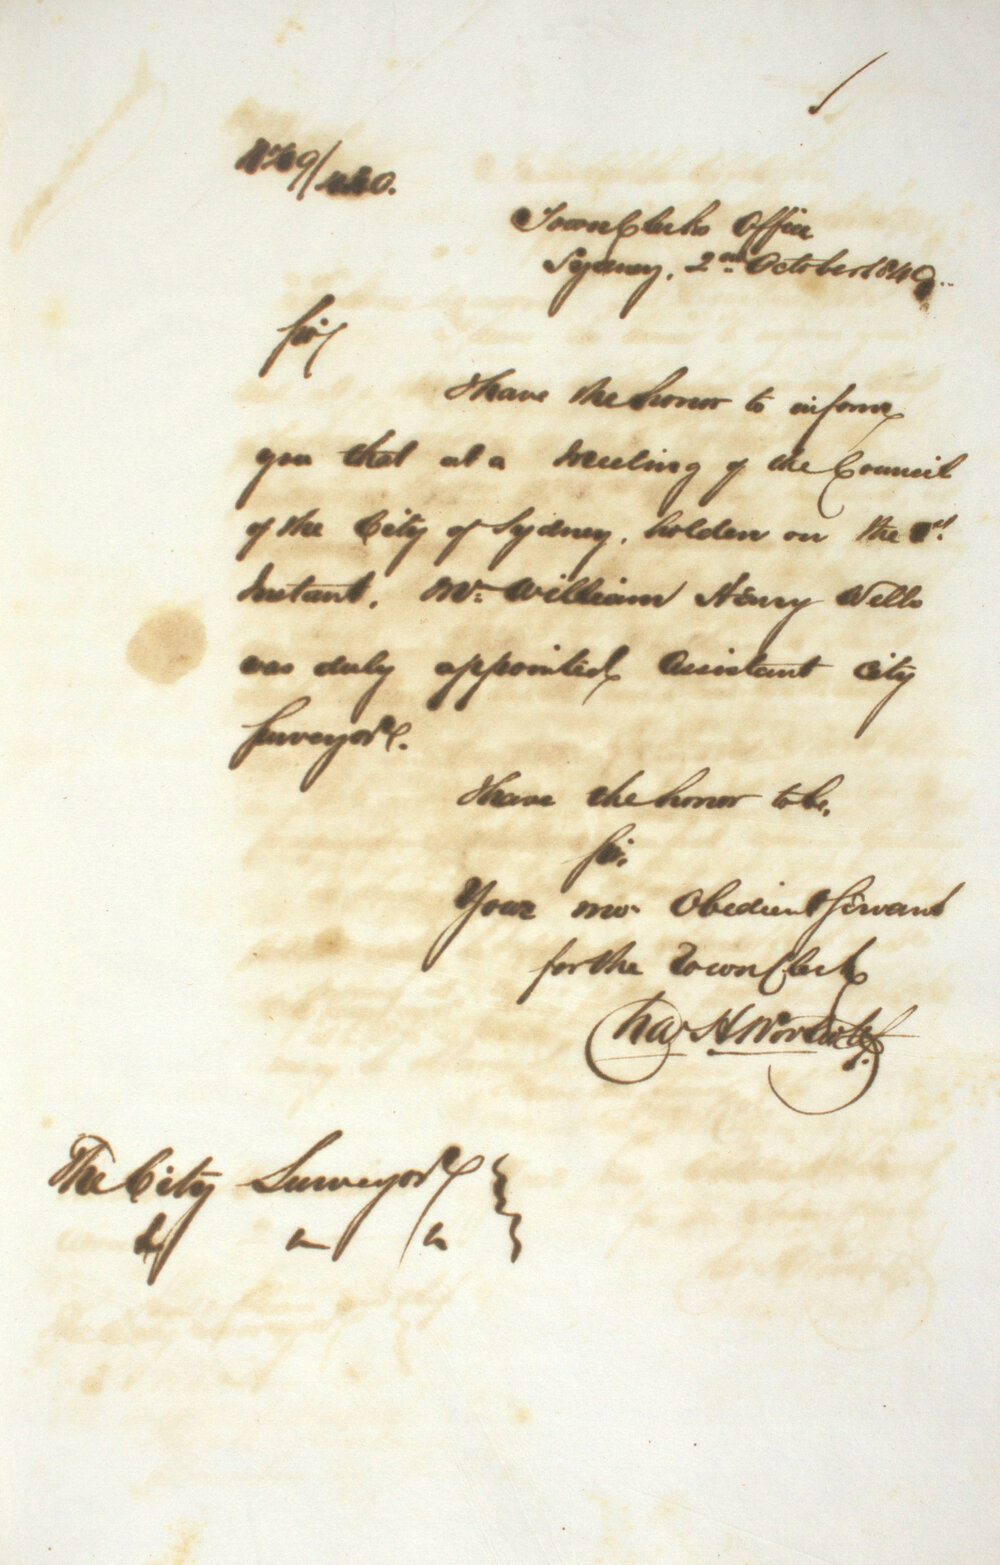 Town Clerks Office
Sydney, 2nd October 184
Sir,
I have the honor to inform
you that at a Meeting of the Council
of the City of Sydney, holden on the
Instant, Mr. William Henry Wells
was duly appointed Assistant City
Surveyor.
I have the honor to be,
Sir,
Your mo. Obedient Servant
for the Town Clerk
Chas H Woolcott
The City Surveyor